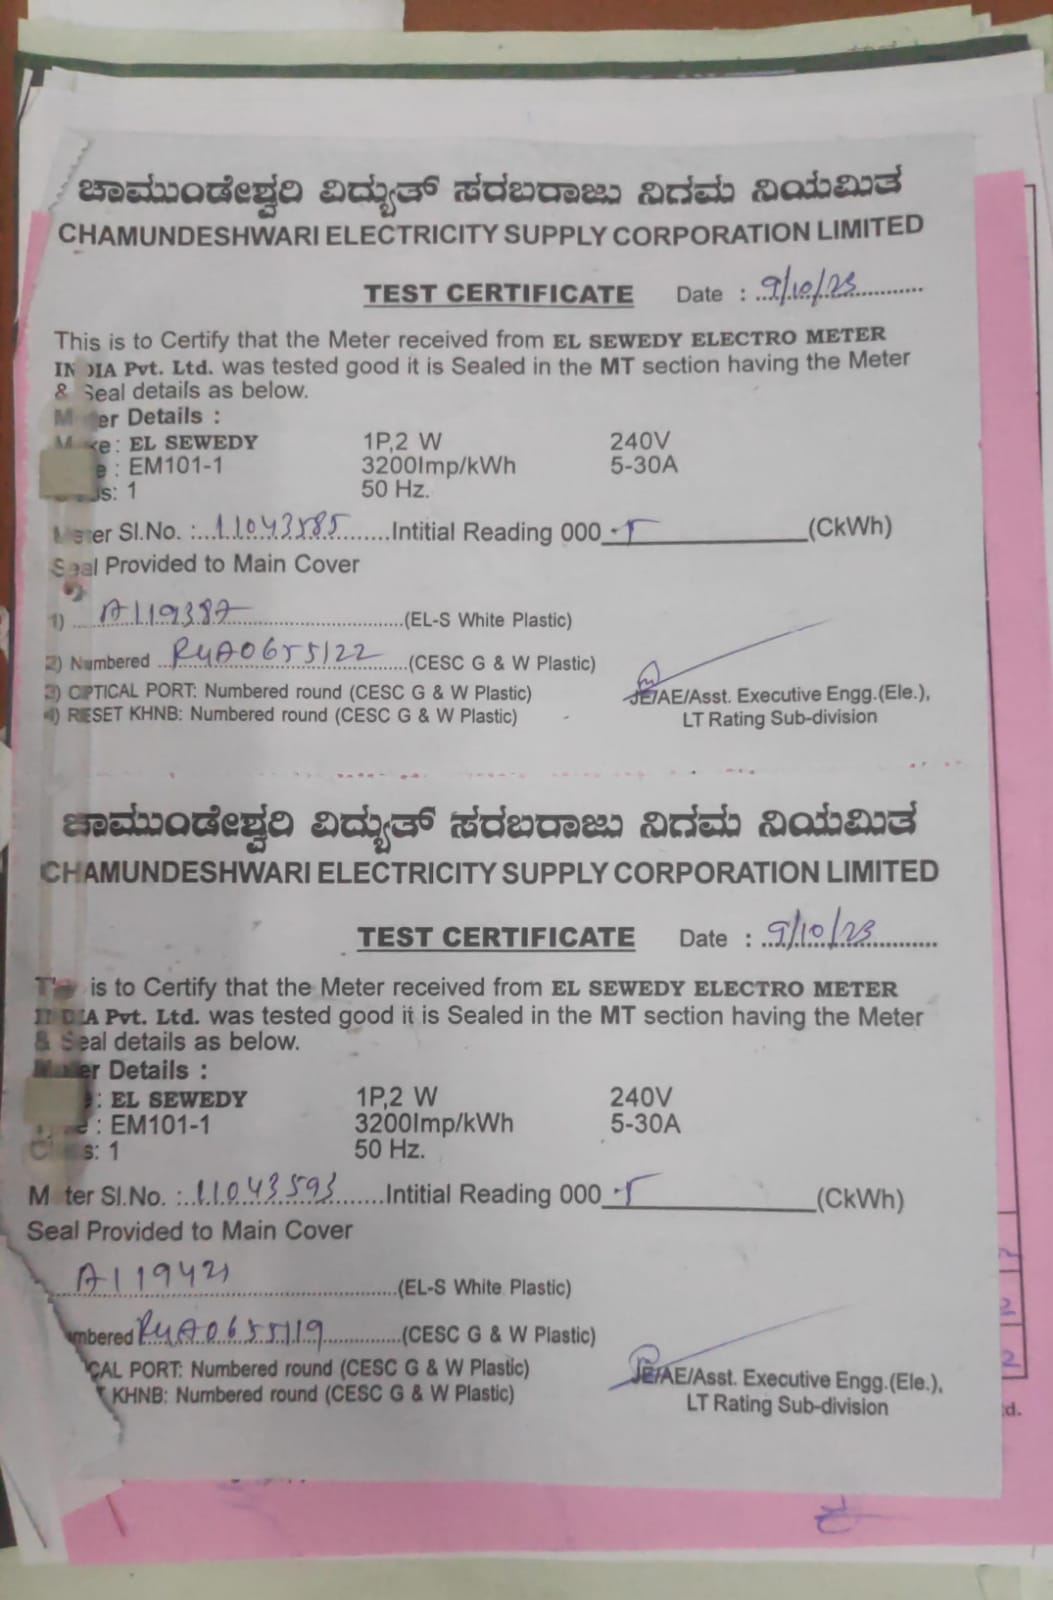 ಚಾಮುಂಡೇಶ್ವರಿ ವಿದ್ಯುತ್ ಸರಬರಾಜು ನಿಗಮ ನಿಯಮಿತ
CHAMUNDESHWARI ELECTRICITY SUPPLY CORPORATION LIMITED
TEST CERTIFICATE Date : 9/10/23
This is to Certify that the Meter received from EL SEWEDY ELECTRO METER
INDIA Pvt. Ltd. was tested good it is Sealed in the MT section having the Meter
& Seal details as below.
Meter Details :
Make: EL SEWEDY 1P,2 W 240V
: EM101-1 3200Imp/kWh 5-30A
: 1 50 Hz.
Meter Sl.No. : 11043585 Intitial Reading 000 (CkWh)
Seal Provided to Main Cover
1) A119387 (EL-S White Plastic)
2) Numbered R4A0655122 (CESC G & W Plastic)
3) OPTICAL PORT: Numbered round (CESC G & W Plastic)
4) RESET KHNB: Numbered round (CESC G & W Plastic)
JE/AE/Asst. Executive Engg.(Ele.),
LT Rating Sub-division
ಚಾಮುಂಡೇಶ್ವರಿ ವಿದ್ಯುತ್ ಸರಬರಾಜು ನಿಗಮ ನಿಯಮಿತ
CHAMUNDESHWARI ELECTRICITY SUPPLY CORPORATION LIMITED
TEST CERTIFICATE Date : 9/10/23
is to Certify that the Meter received from EL SEWEDY ELECTRO METER
INDIA Pvt. Ltd. was tested good it is Sealed in the MT section having the Meter
& Seal details as below.
Meter Details :
: EL SEWEDY 1P,2 W 240V
: EM101-1 3200Imp/kWh 5-30A
Class: 1 50 Hz.
Meter Sl.No. : 11043593 Intitial Reading 000 (CkWh)
Seal Provided to Main Cover
A119421 (EL-S White Plastic)
umbered R4A0655119 (CESC G & W Plastic)
CAL PORT: Numbered round (CESC G & W Plastic)
T KHNB: Numbered round (CESC G & W Plastic)
JE/AE/Asst. Executive Engg.(Ele.),
LT Rating Sub-division